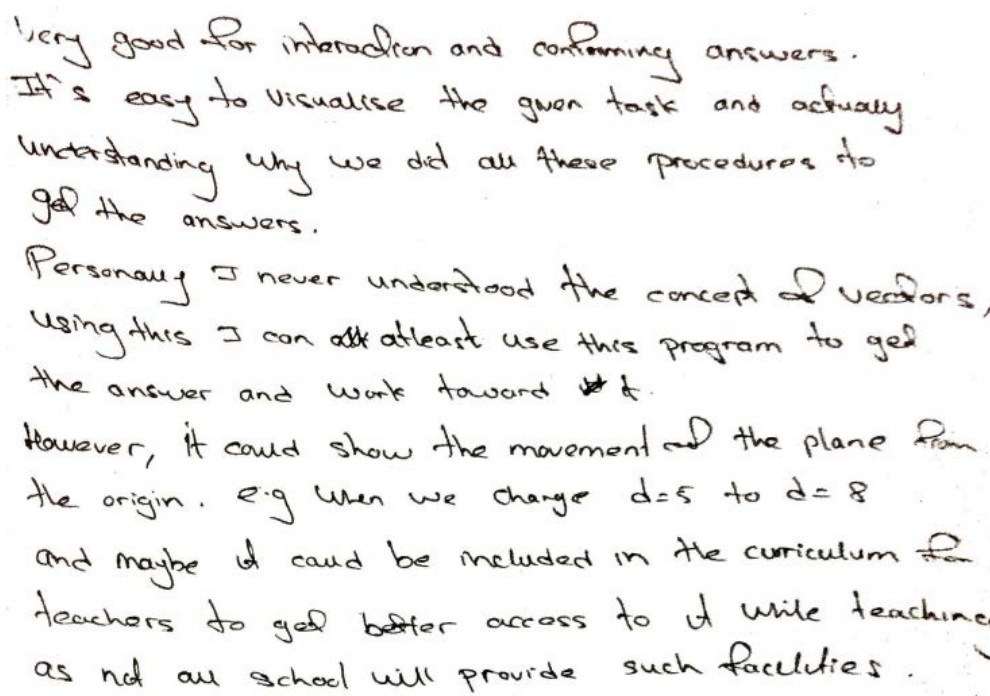 Very good for interaction and confirming answers.
It's easy to visualise the given task and actually
understanding why we did all these procedures to
get the answers.
Personally I never understood the concept of vectors,
using this I can atleast use this program to get
the answer and work toward it.
However, it could show the movement of the plane from
the origin. e.g when we change d=5 to d=8
and maybe it could be included in the curriculum for
teachers to get better access to it while teaching
as not all school will provide such facilities.